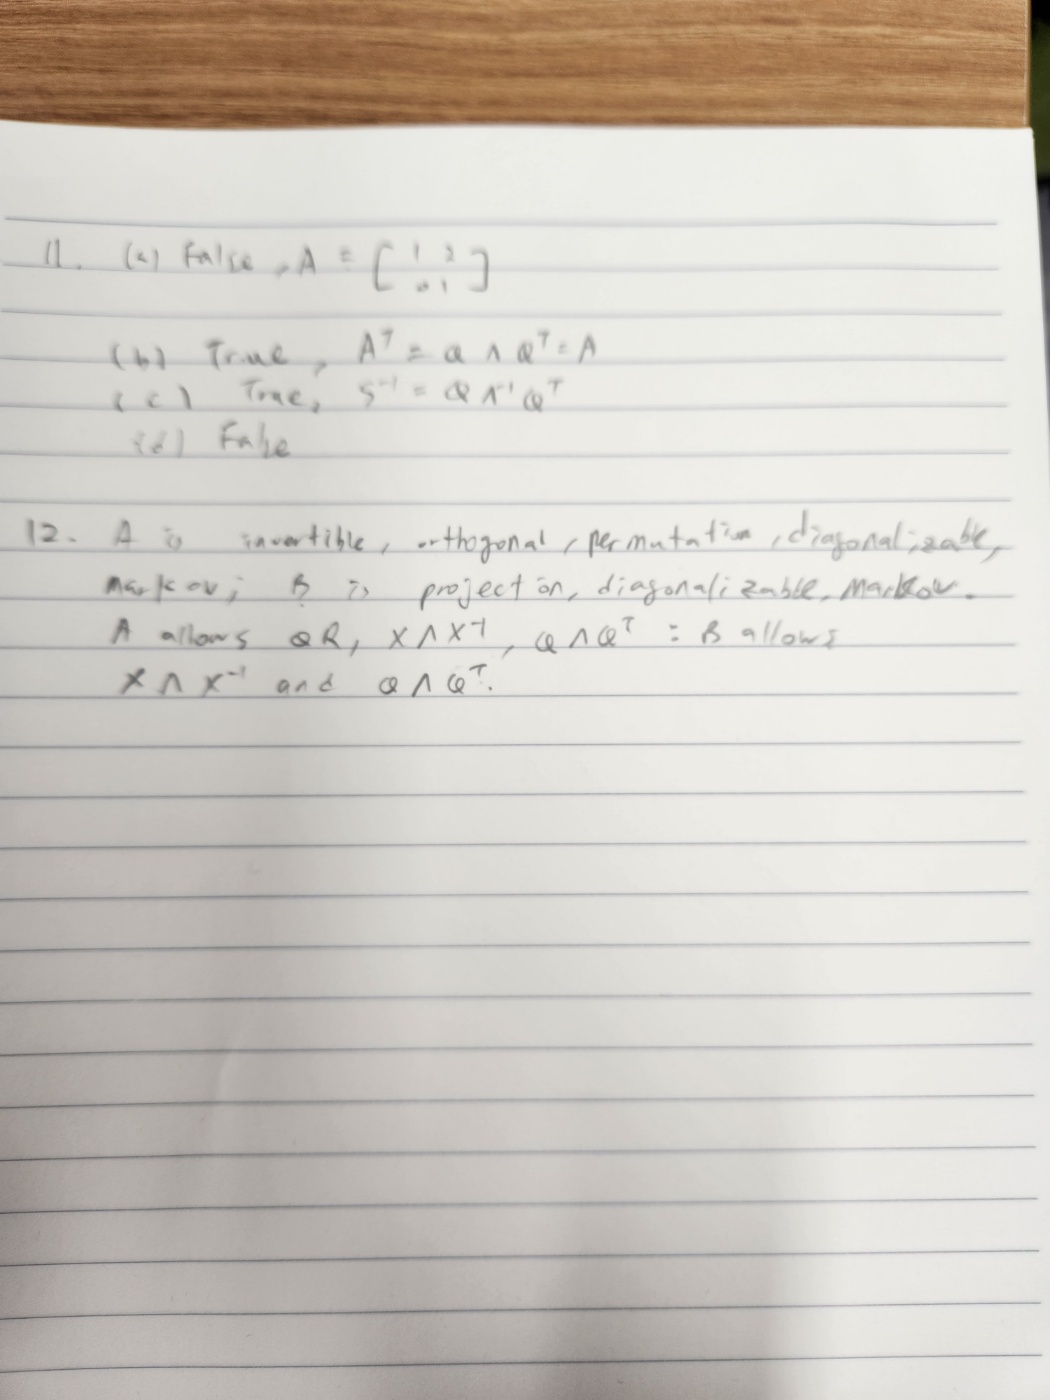 11. (a) False, A = [ 1 2
0 1 ]
(b) True, Aᵀ = Q Λ Qᵀ = A
(c) True, S⁻¹ = Q Λ⁻¹ Qᵀ
(d) False
12. A is invertible, orthogonal, permutation, diagonalizable,
Markov; B is projection, diagonalizable, Markov.
A allows QR, XΛX⁻¹, QΛQᵀ : B allows
XΛX⁻¹ and QΛQᵀ.